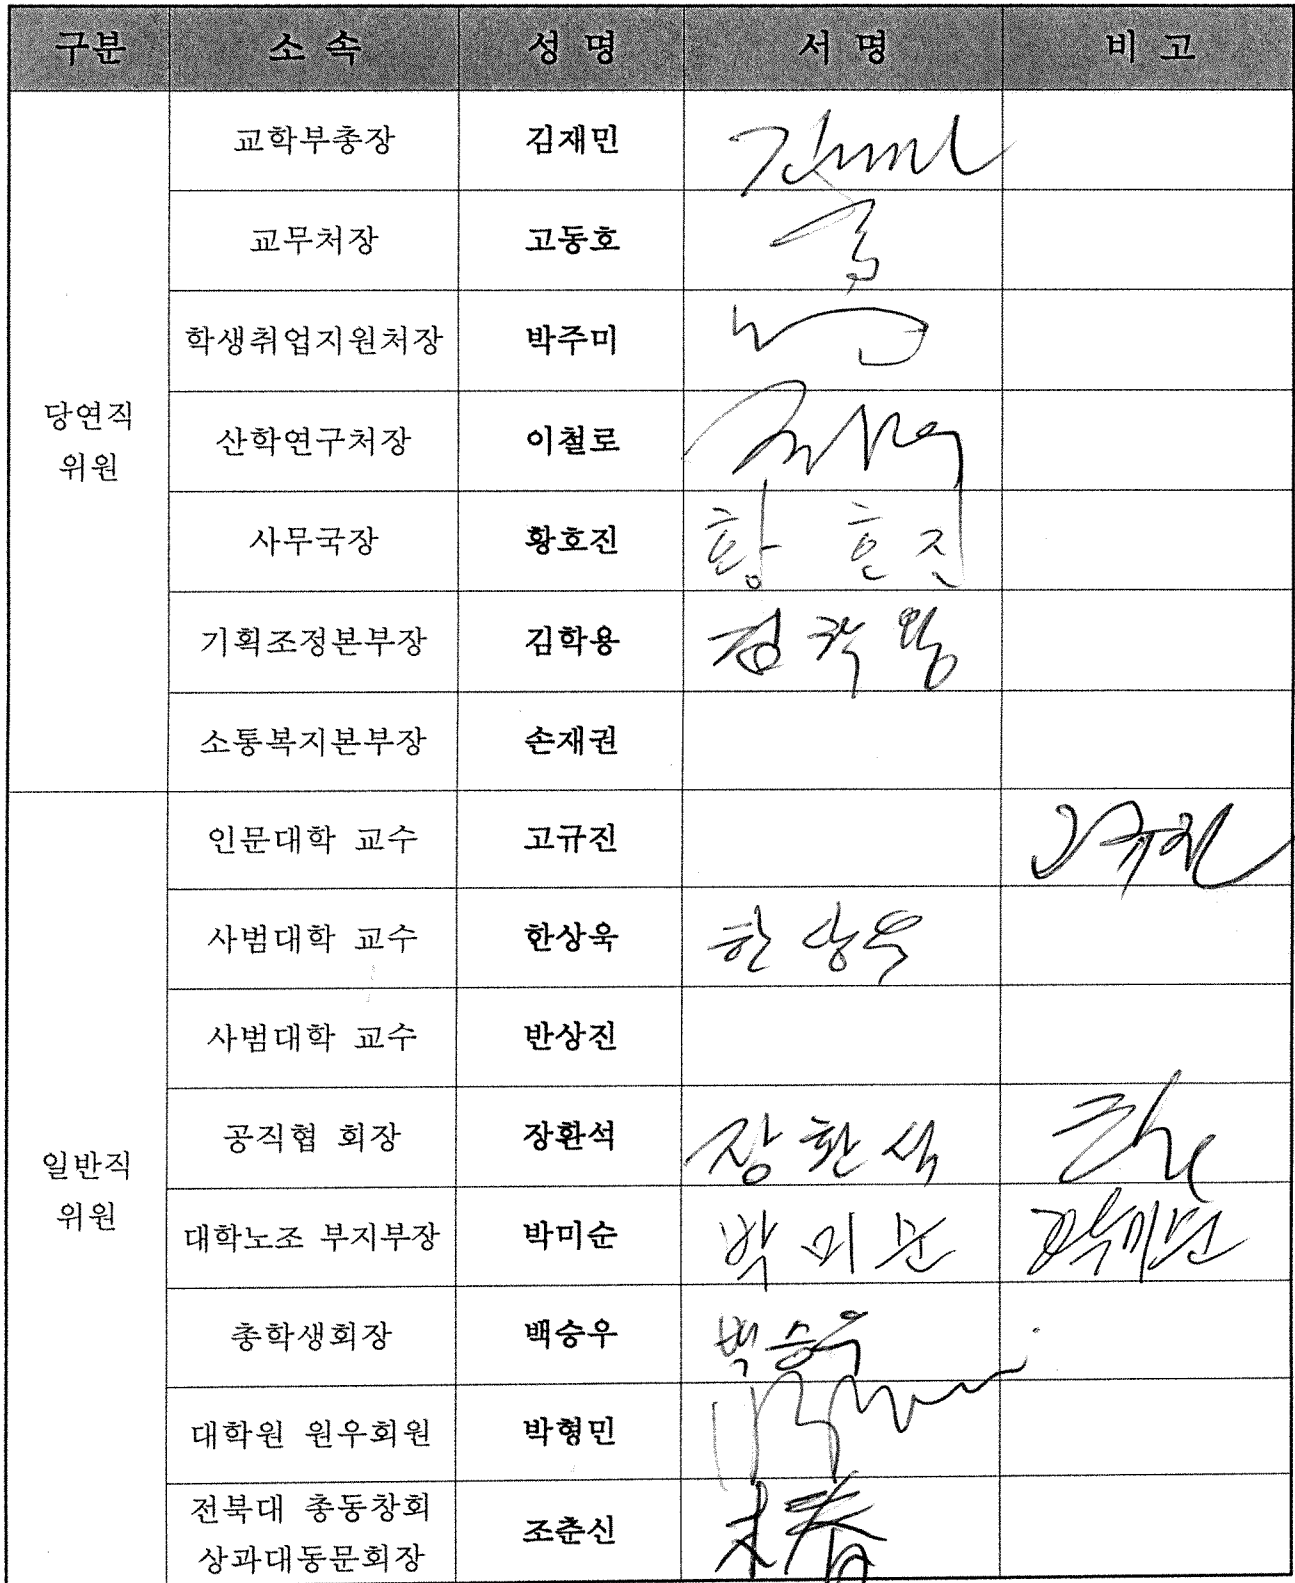 구분 소 속 성 명 서 명 비 고
교학부총장 김재민
교무처장 고동호
학생취업지원처장 박주미
당연직
위원
산학연구처장 이철로
사무국장 황호진 황 호 진
기획조정본부장 김학용 김 학 용
소통복지본부장 손재권
인문대학 교수 고규진 고규진
사범대학 교수 한상욱 한 상 욱
사범대학 교수 반상진
일반직
위원
공직협 회장 장환석 장 환 석
대학노조 부지부장 박미순 박 미 순 박미순
총학생회장 백승우 백승우
대학원 원우회원 박형민
전북대 총동창회
상과대동문회장 조춘신